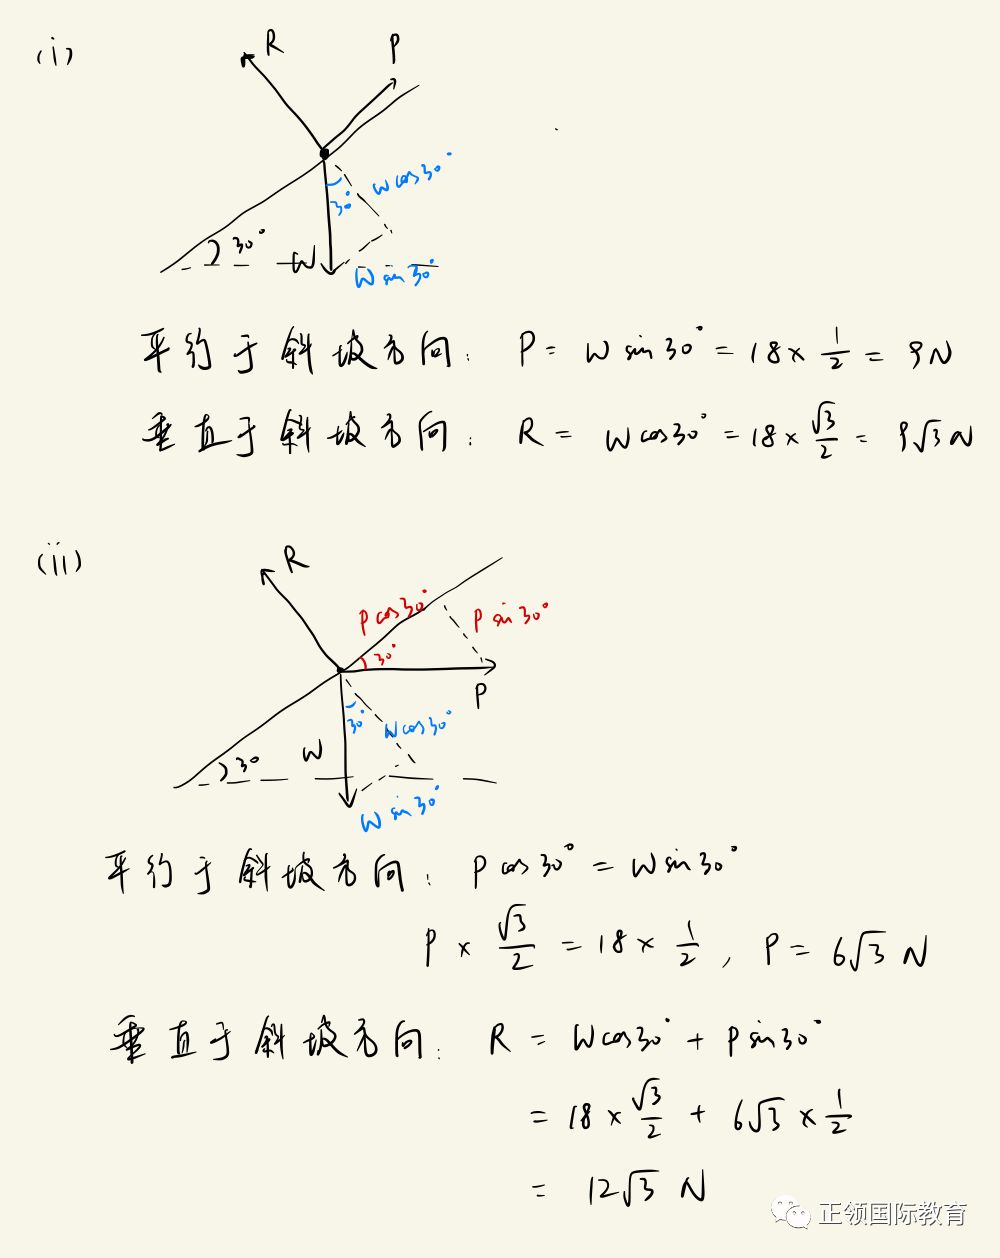 (i)
R
P
W cos30°
30°
30°
W
W sin30°
平行于斜坡方向: P = W sin30° = 18 × 1/2 = 9N
垂直于斜坡方向: R = W cos30° = 18 × √3/2 = 9√3 N
(ii)
R
P cos30°
P sin30°
30°
P
30°
W cos30°
30
W
W sin30°
平行于斜坡方向: P cos30° = W sin30°
P × √3/2 = 18 × 1/2 , P = 6√3 N
垂直于斜坡方向: R = W cos30° + P sin30°
= 18 × √3/2 + 6√3 × 1/2
= 12√3 N
正领国际教育